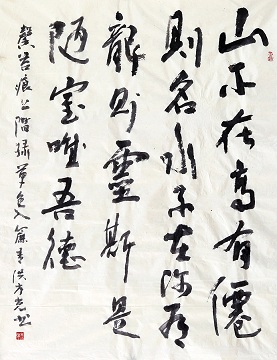 山不在高有僊
則名水不在深有
龍则靈斯是
陋室唯吾德
馨苔痕上階緑草色入簾青洪方